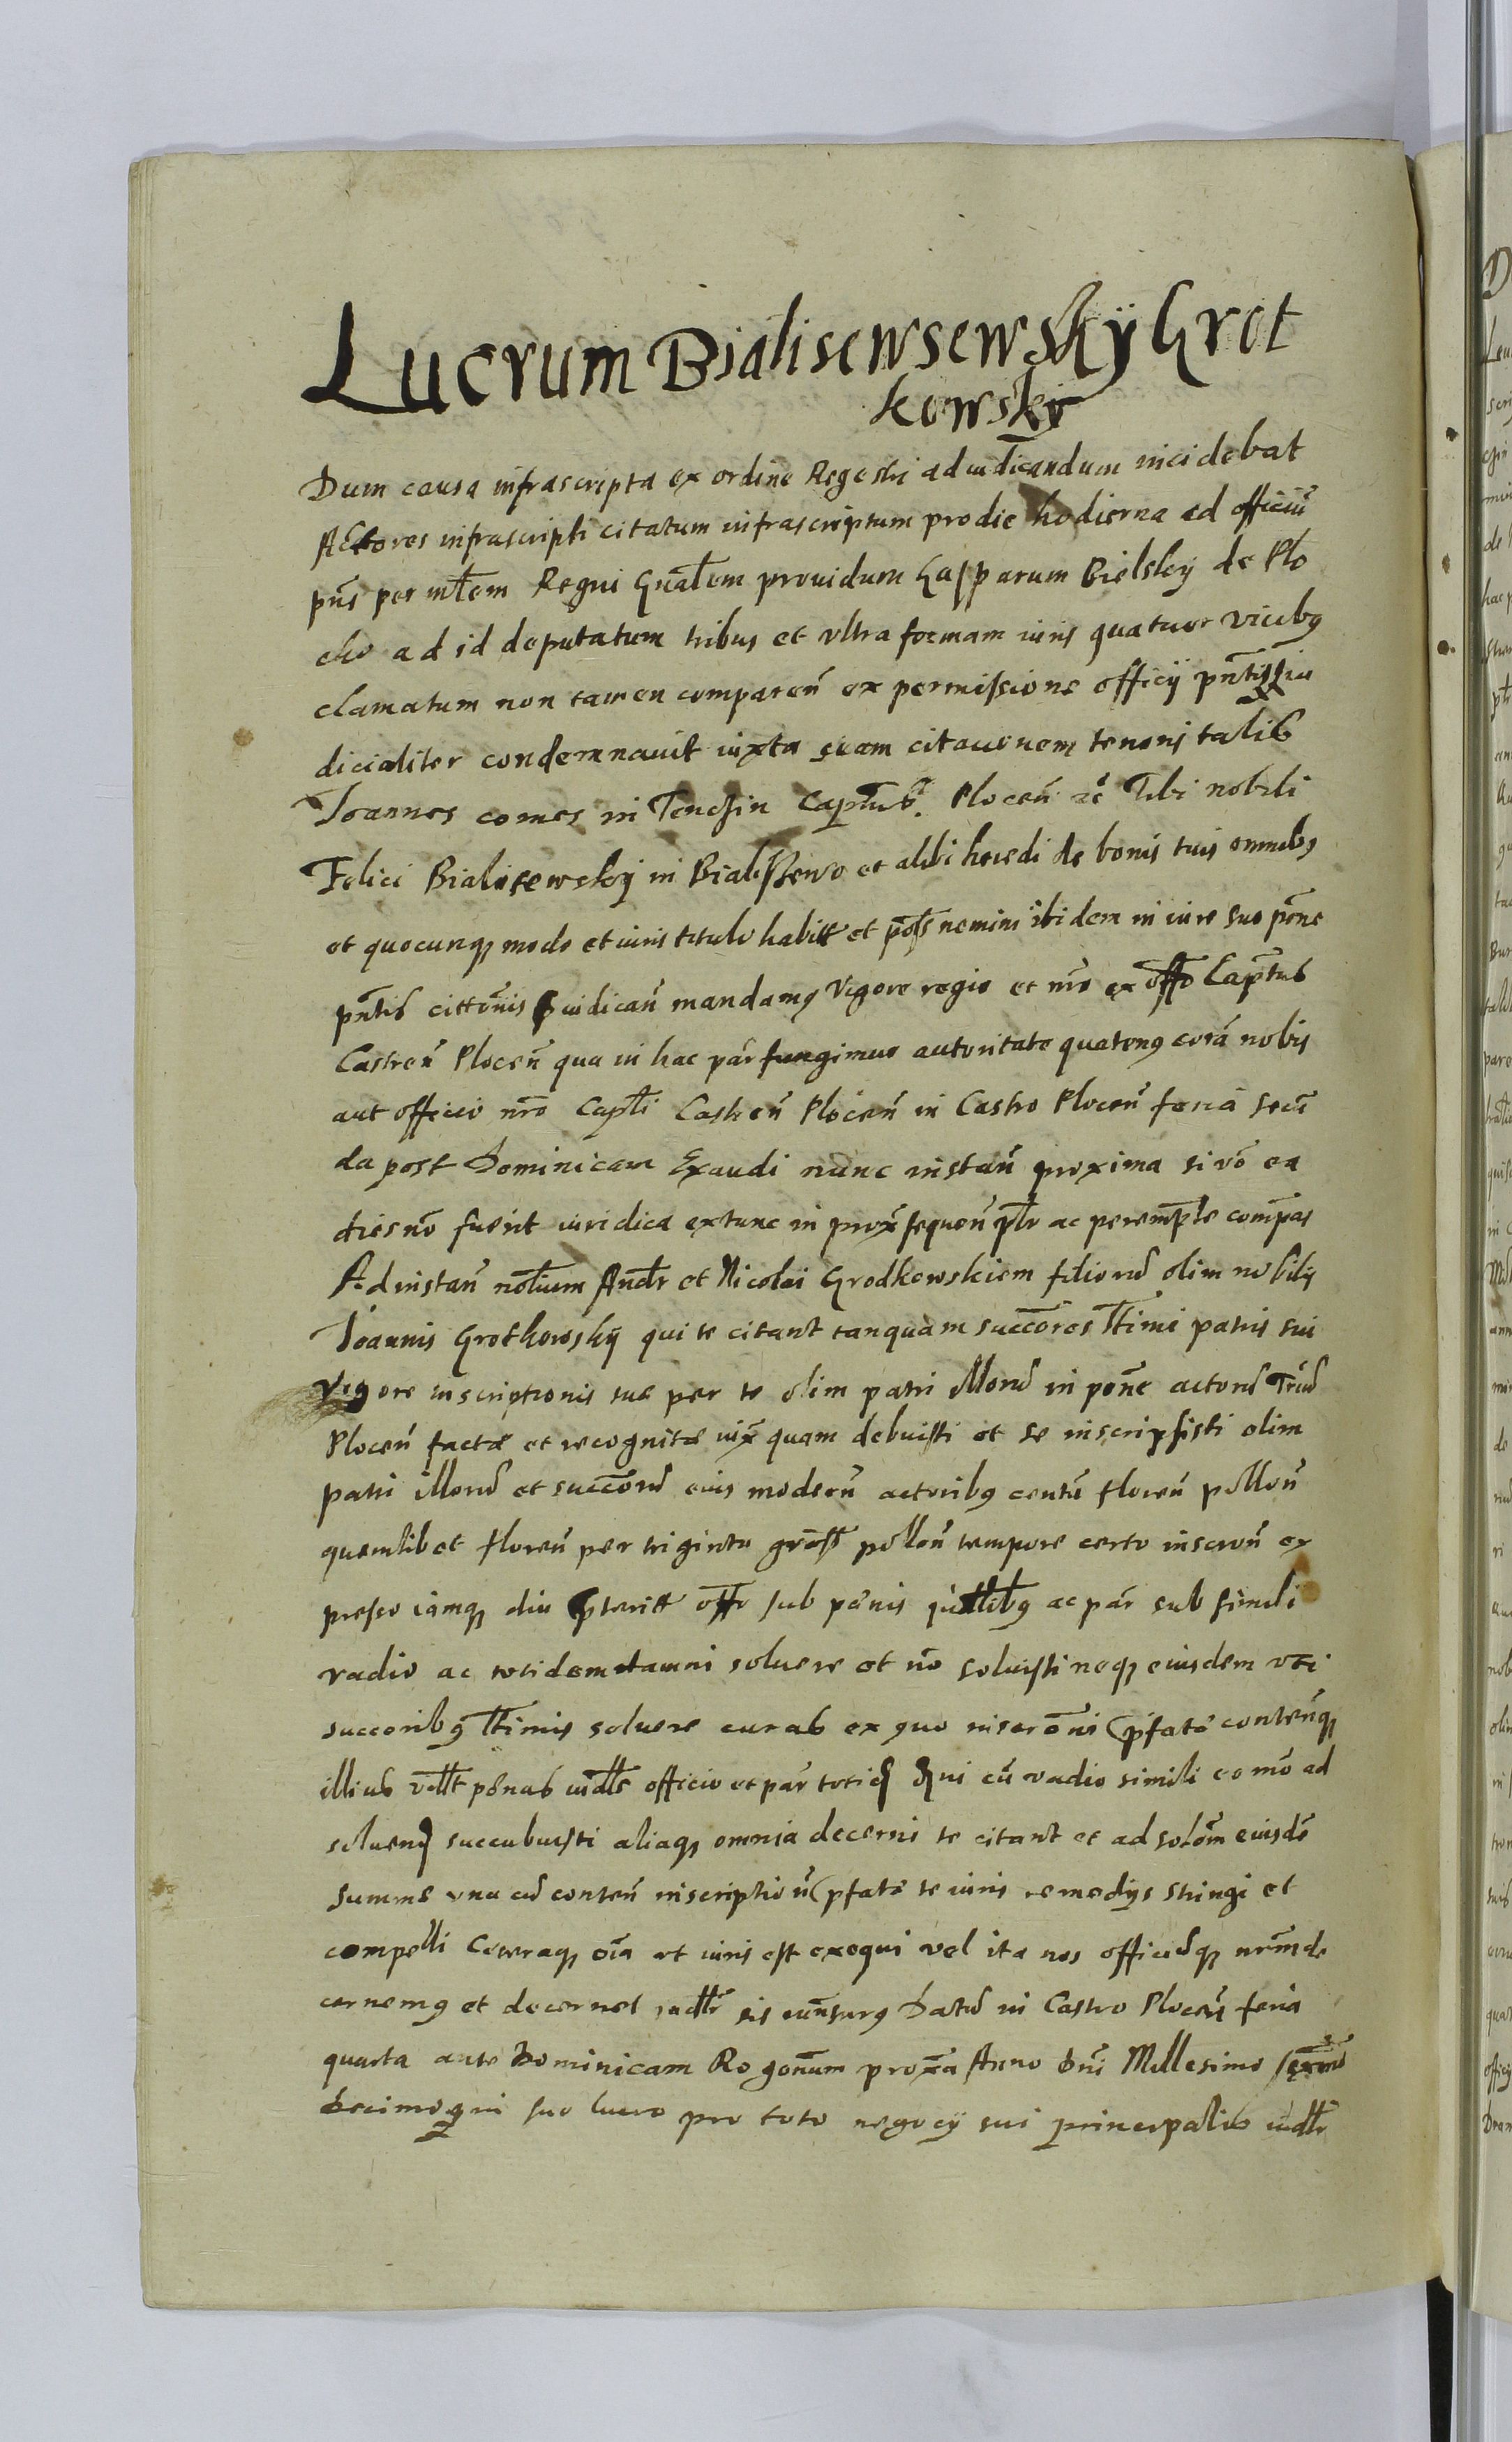 Lucrum Bialisewsewskÿ Grot
kowsky
Dum causa infrascripta ex ordine Regestri ad iudicandum incidebat
Actores infrascripti citatum infrascriptum pro die hodierna ad officiū
pn̄s per mīlem Regni Gn̄alem prouidum Gasparum Bielskÿ de Plo
cko ad id deputatum tribus et vltra formam iuris quatuor vicibꝰ
clamatum non tamen comparen̄ ex permissione officÿ pn̄tis iu
dicialiter condemnauit iuxta suam citationem tenoris talis
Joannes comes in Tenczin Captūs Plocen̄ zc̄ Tibi nobili
Felici Bialisewskÿ in Bialissewo et alibi heredi de bonis tuis omnibꝰ
et quocunqꝫ modo et iuris titulo habitt et poss nemini ibidem in iure suo pōne
pn̄tis cittōnis p̄iudican̄ mandamꝰ vigore regio et nr̄o ex offo Captūs
Castren̄ Plocen̄ qua in hac par̄ fungimur autoritate quatenꝰ corā nobis
aut officio nr̄o Captli Castren̄ Plocen̄ in Castro Plocen̄ feria secū
da post Dominicam Exaudi nunc instan̄ proxima si vō ea
dies nō fuerit iuridica extunc in prox̄ sequen̄ ptr ac perempt̄e compas
Ad instan̄ nōlium Andr et Nicolai Grodkowskiem filiorū olim nobilis
Joannis Grotkowskÿ qui te citant tanquam succōres ltīmi patris sui
Vigore inscriptionis tuæ per te olim patri illorū in pōne actorū Trūū
Plocen̄ factæ et recognitæ iux̄ quam debuisti et se inscripsisti olim
patri illorū et succōrū eius modern̄ actoribꝰ centū floren̄ pollon̄
quemlibet floren̄ per triginta gross pollon̄ tempore certo inscron̄ ex
presso iamqꝫ diu p̄teritt offo sub pænis iudlibꝰ ac par̄ sub simili
vadio ac totidem damni soluere et nō soluisti neqꝫ eiusdem vti
succoribꝰ ltīmis soluere curas ex quo inscrōni p̄fatæ contenq̄ꝫ
illius vllt pœnas iudles officio et par̄ totid dni cū vadio simili eo mō ad
soluend succubuisti aliaqꝫ omnia decerni te citant et ad solōm eiusdē
summæ vna cū conten̄ inscription̄ p̄fatæ te iuris remedÿs stringi et
compelli Ceteraqꝫ oīa vt iuris est exequi vel ita nos officiūqꝫ nr̄m de
cernemꝰ et decernet iudlr sis cun̄surꝰ Datū in Castro Plocen̄ feria
quarta ante Dominicam Rogōnum prox̄a Anno dn̄i Millesimo sexmō
decimo in suo lucro pro toto negocÿ sui principalis iudlr